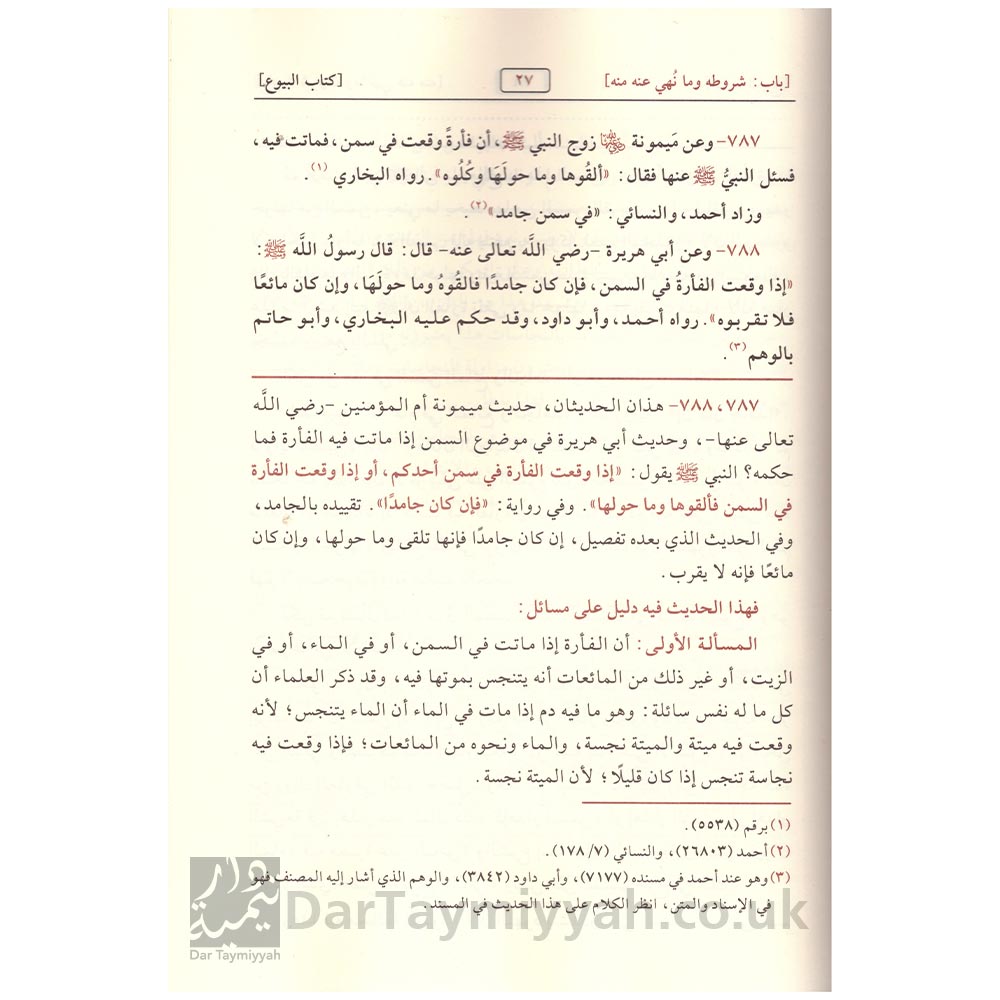 [باب: شروطه وما نُهي عنه منه] ٢٧ [كتاب البيوع]
٧٨٧- وعن مَيمونة رضي الله عنها زوج النبي ﷺ، أن فأرةً وقعت في سمن، فماتت فيه،
فسئل النبيُّ ﷺ عنها فقال: «ألقُوها وما حولَهَا وكُلُوه». رواه البخاري (١).
وزاد أحمد، والنسائي: «في سمن جامد»(٢).
٧٨٨- وعن أبي هريرة -رضي اللَّه تعالى عنه- قال: قال رسولُ اللَّه ﷺ:
«إذا وقعت الفأرةُ في السمن، فإن كان جامدًا فالقُوهُ وما حولَهَا، وإن كان مائعًا
فلا تقربوه». رواه أحمد، وأبو داود، وقد حكم عليه البخاري، وأبو حاتم
بالوهم(٣).
٧٨٧، ٧٨٨- هذان الحديثان، حديث ميمونة أم المؤمنين -رضي اللَّه
تعالى عنها-، وحديث أبي هريرة في موضوع السمن إذا ماتت فيه الفأرة فما
حكمه؟ النبي ﷺ يقول: «إذا وقعت الفأرة في سمن أحدكم، أو إذا وقعت الفأرة
في السمن فألقوها وما حولها». وفي رواية: «فإن كان جامدًا». تقييده بالجامد،
وفي الحديث الذي بعده تفصيل، إن كان جامدًا فإنها تلقى وما حولها، وإن كان
مائعًا فإنه لا يقرب.
فهذا الحديث فيه دليل على مسائل:
المسألة الأولى: أن الفأرة إذا ماتت في السمن، أو في الماء، أو في
الزيت، أو غير ذلك من المائعات أنه يتنجس بموتها فيه، وقد ذكر العلماء أن
كل ما له نفس سائلة: وهو ما فيه دم إذا مات في الماء أن الماء يتنجس؛ لأنه
وقعت فيه ميتة والميتة نجسة، والماء ونحوه من المائعات؛ فإذا وقعت فيه
نجاسة تنجس إذا كان قليلًا؛ لأن الميتة نجسة.
(١) برقم (٥٥٣٨).
(٢) أحمد (٢٦٨٠٣)، والنسائي (٧/ ١٧٨).
(٣) وهو عند أحمد في مسنده (٧١٧٧)، وأبي داود (٣٨٤٢)، والوهم الذي أشار إليه المصنف فهو
في الإسناد والمتن، انظر الكلام على هذا الحديث في المسند.
دار تيمية
Dar Taymiyyah
DarTaymiyyah.co.uk